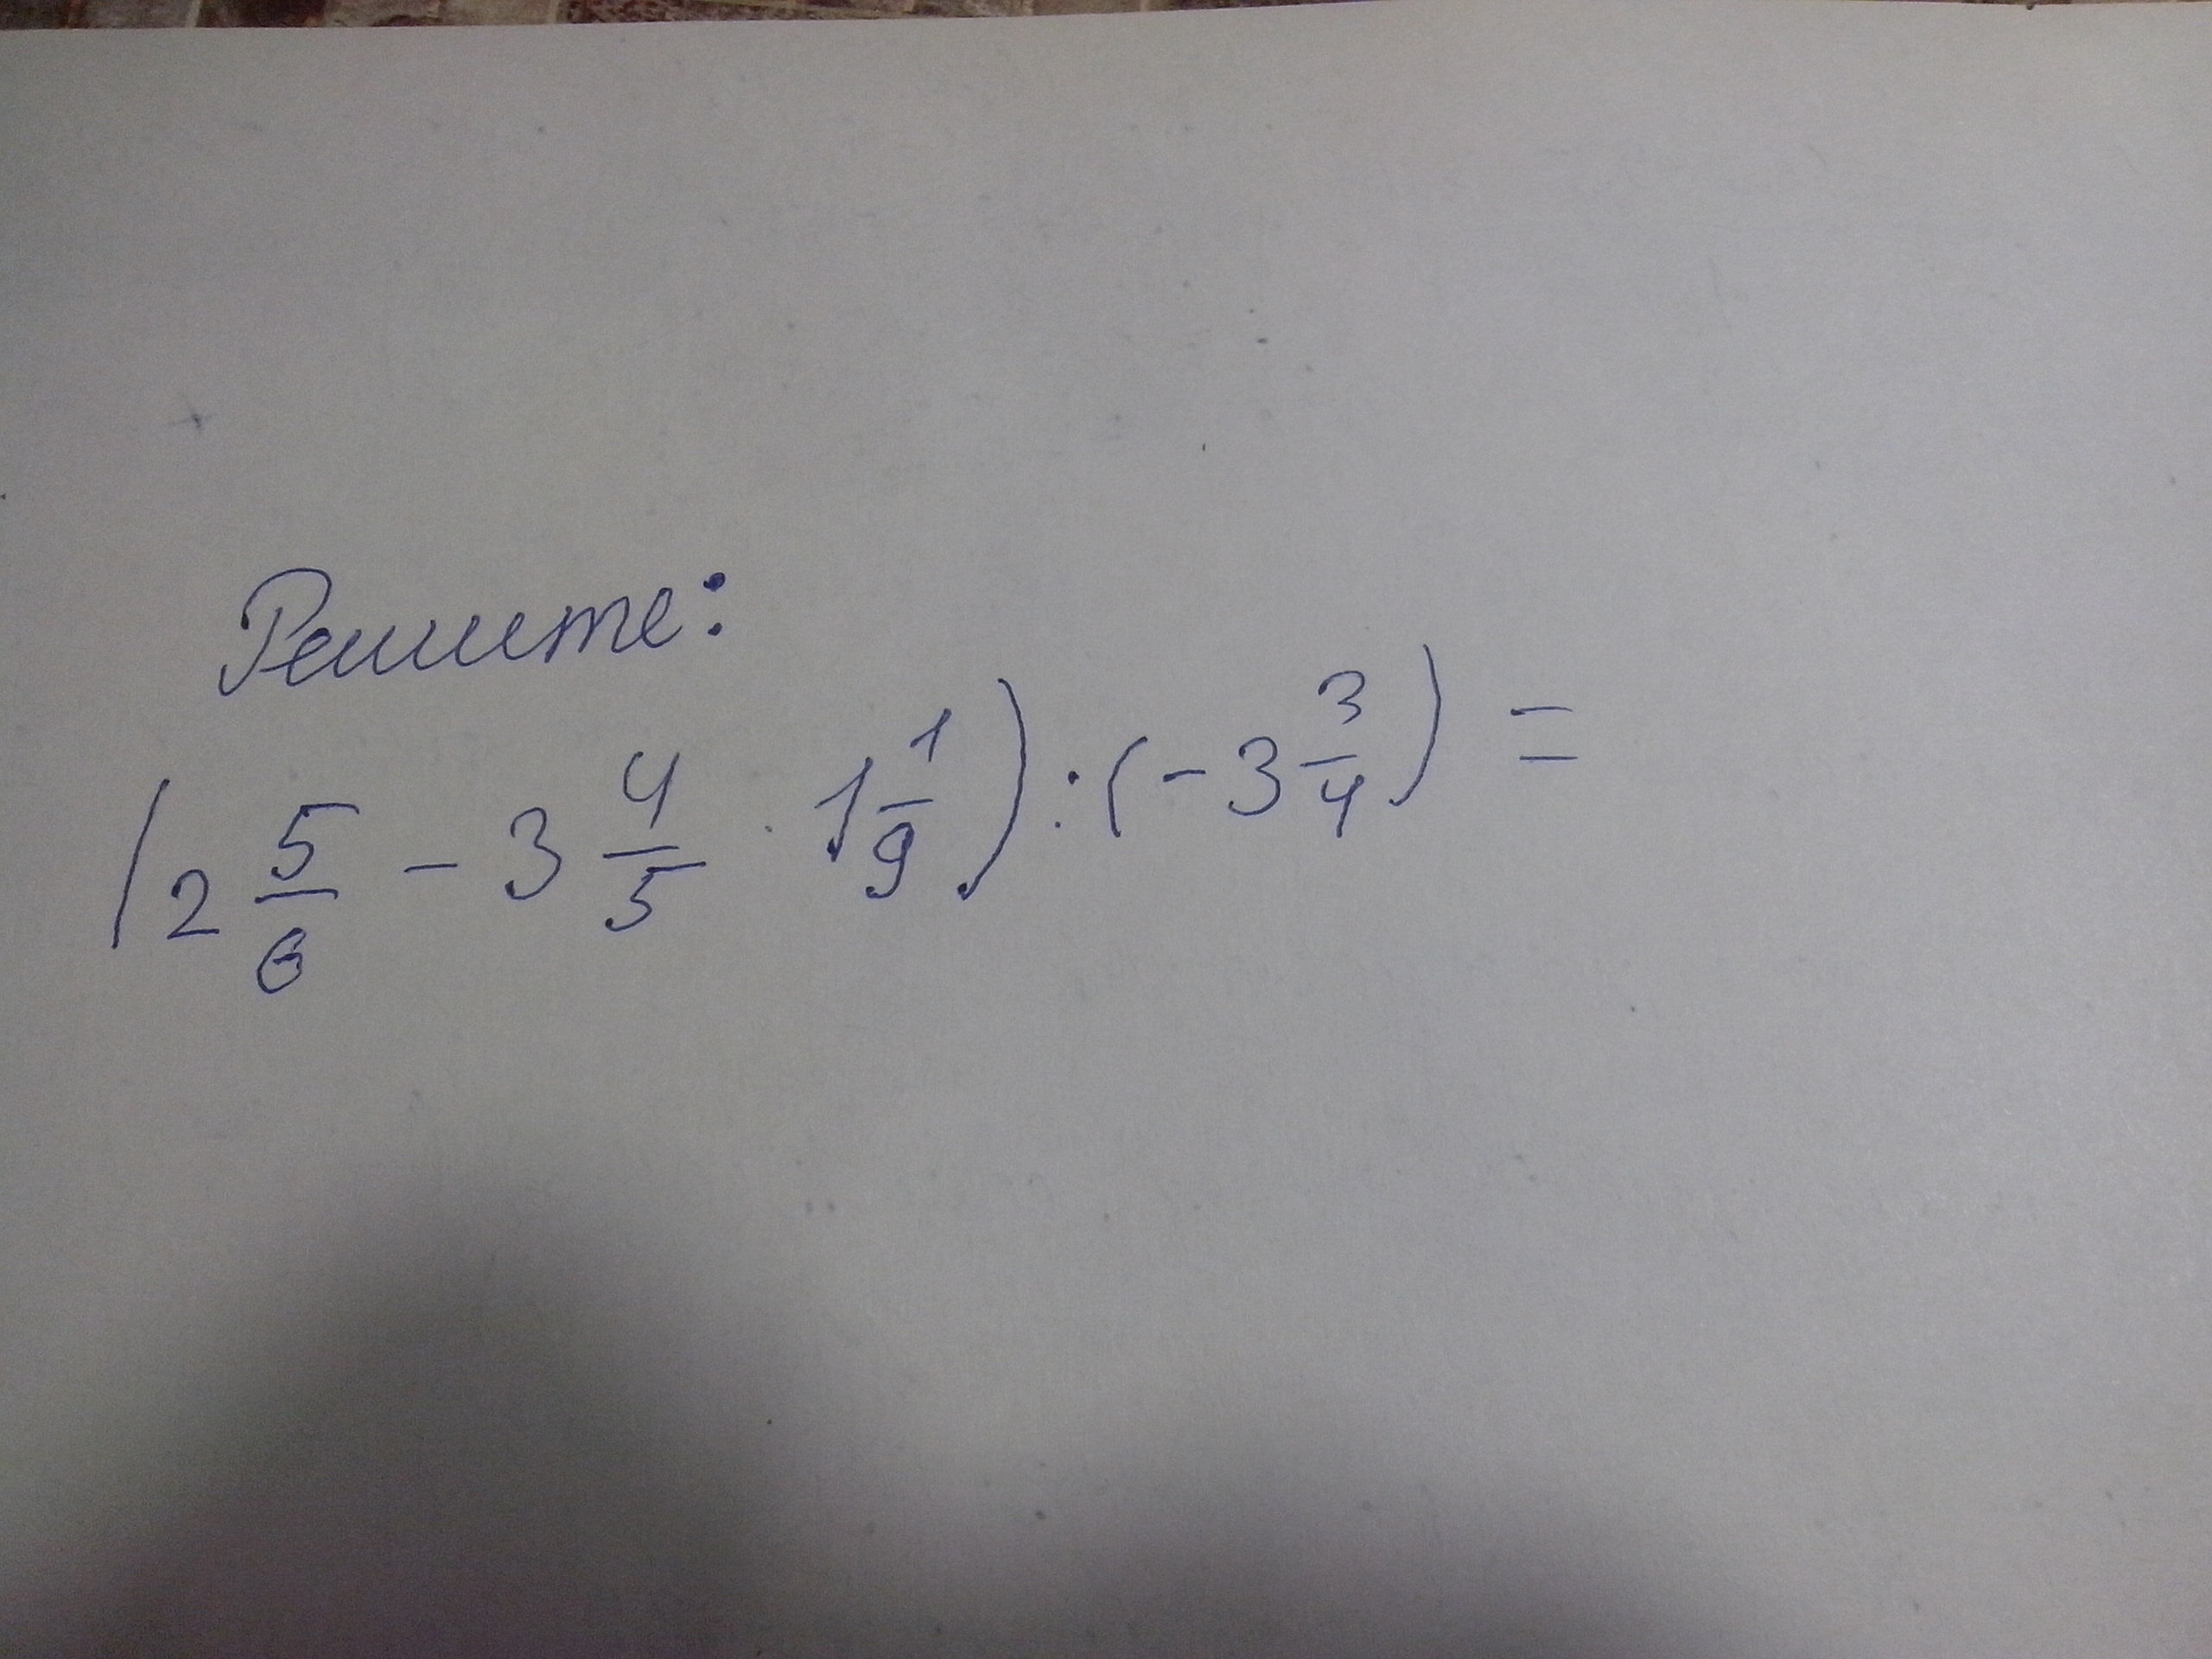 Решите:
(2 5/6 - 3 4/5 · 1 1/9) : (-3 3/4) =